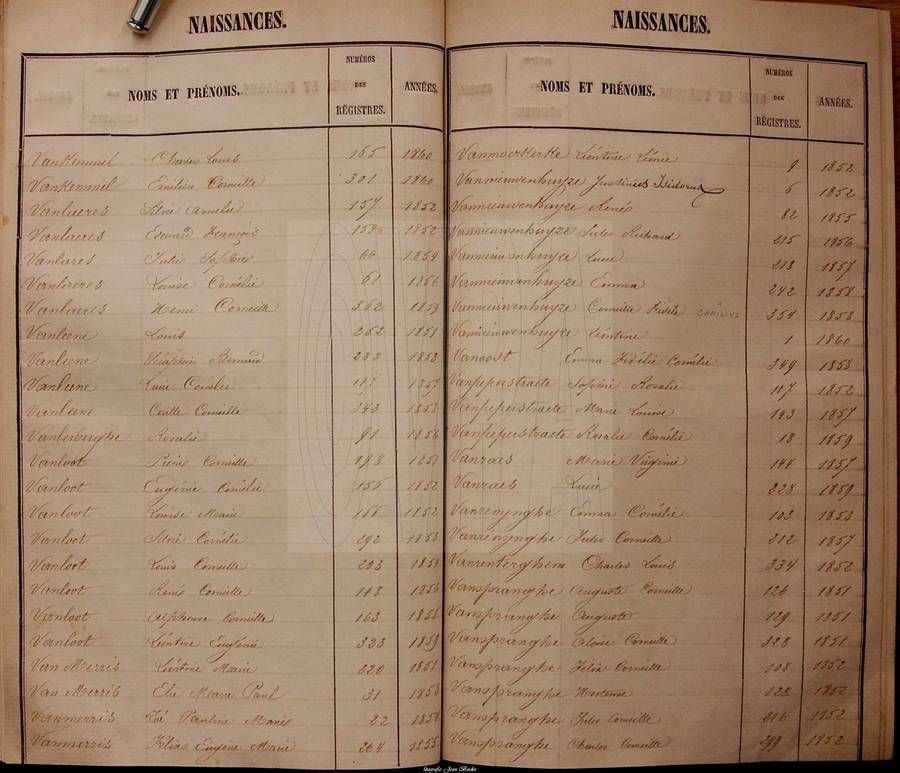 NAISSANCES.
NOMS ET PRÉNOMS. NUMÉROS DES RÉGISTRES. ANNÉES.
Vankemmel Charles Louis 165 1860
Vankemmel Emilien Corneille 301 1860
Vanlaeres Silvie Amelie 157 1852
Vanlaeres Edouard François 158 1852
Vanlares Julie Sophie 66 1854
Vanlaeres Louise Cornélie 61 1856
Vanlaeres Henri Corneille 362 1859
Vanleene Louis 252 1851
Vanleene Séraphin Bernard 283 1853
Vanleene Lucie Cornélie 187 1857
Vanleene Cerille Corneille 343 1858
Vanlerberghe Rosalie 91 1856
Vanloot Pierre Corneille 198 1851
Vanloot Eugénie Cornélie 155 1852
Vanloot Louise Marie 166 1852
Vanloot Silvie Cornélie 292 1853
Vanloot Louis Corneille 203 1854
Vanloot René Corneille 118 1856
Vanloot Alphonse Corneille 163 1858
Vanloot Léontine Eugénie 323 1859
Van Merris Léontine Marie 220 1851
Van Merris Elie Marie Paul 31 1853
Vanmerris Zoé Pauline Marie 22 1858
Vanmerris Félix Eugène Marie 264 1855
NAISSANCES.
NOMS ET PRÉNOMS. NUMÉROS DES RÉGISTRES. ANNÉES.
Vanmoerkerke Léontine Léonie 9 1852
Vannieuwenhuyze Justinus Isidorus 6 1852
Vannieuwenhuyze René 82 1855
Vannieuwenhuyze Jules Richard 215 1856
Vannieuwenhuyze Lucie 213 1857
Vannieuwenhuyze Emma 242 1858
Vannieuwenhuyze Corneille Fidèle CAMILLUS 354 1858
Vannieuwenhuyze Léontine 1 1860
Vanoost Emma Fidélie Cornélie 349 1858
Vanpeperstraete Sophie Rosalie 107 1852
Vanpeperstraete Marie Louise 193 1857
Vanpeperstraete Rosalie Cornélie 18 1859
Vanraes Marie Virginie 144 1857
Vanraes Lucie 328 1859
Vanrenynghe Emma Cornélie 103 1853
Vanrenynghe Jules Corneille 212 1857
Vanrenterghem Charles Louis 334 1852
Vanspranghe Auguste Corneille 126 1851
Vanspranghe Auguste 129 1851
Vanspranghe Aloïse Corneille 328 1851
Vanspranghe Félix Corneille 108 1852
Vanspranghe Hortense 128 1852
Vanspranghe Jules Corneille 216 1852
Vanspranghe Charles Corneille 299 1852